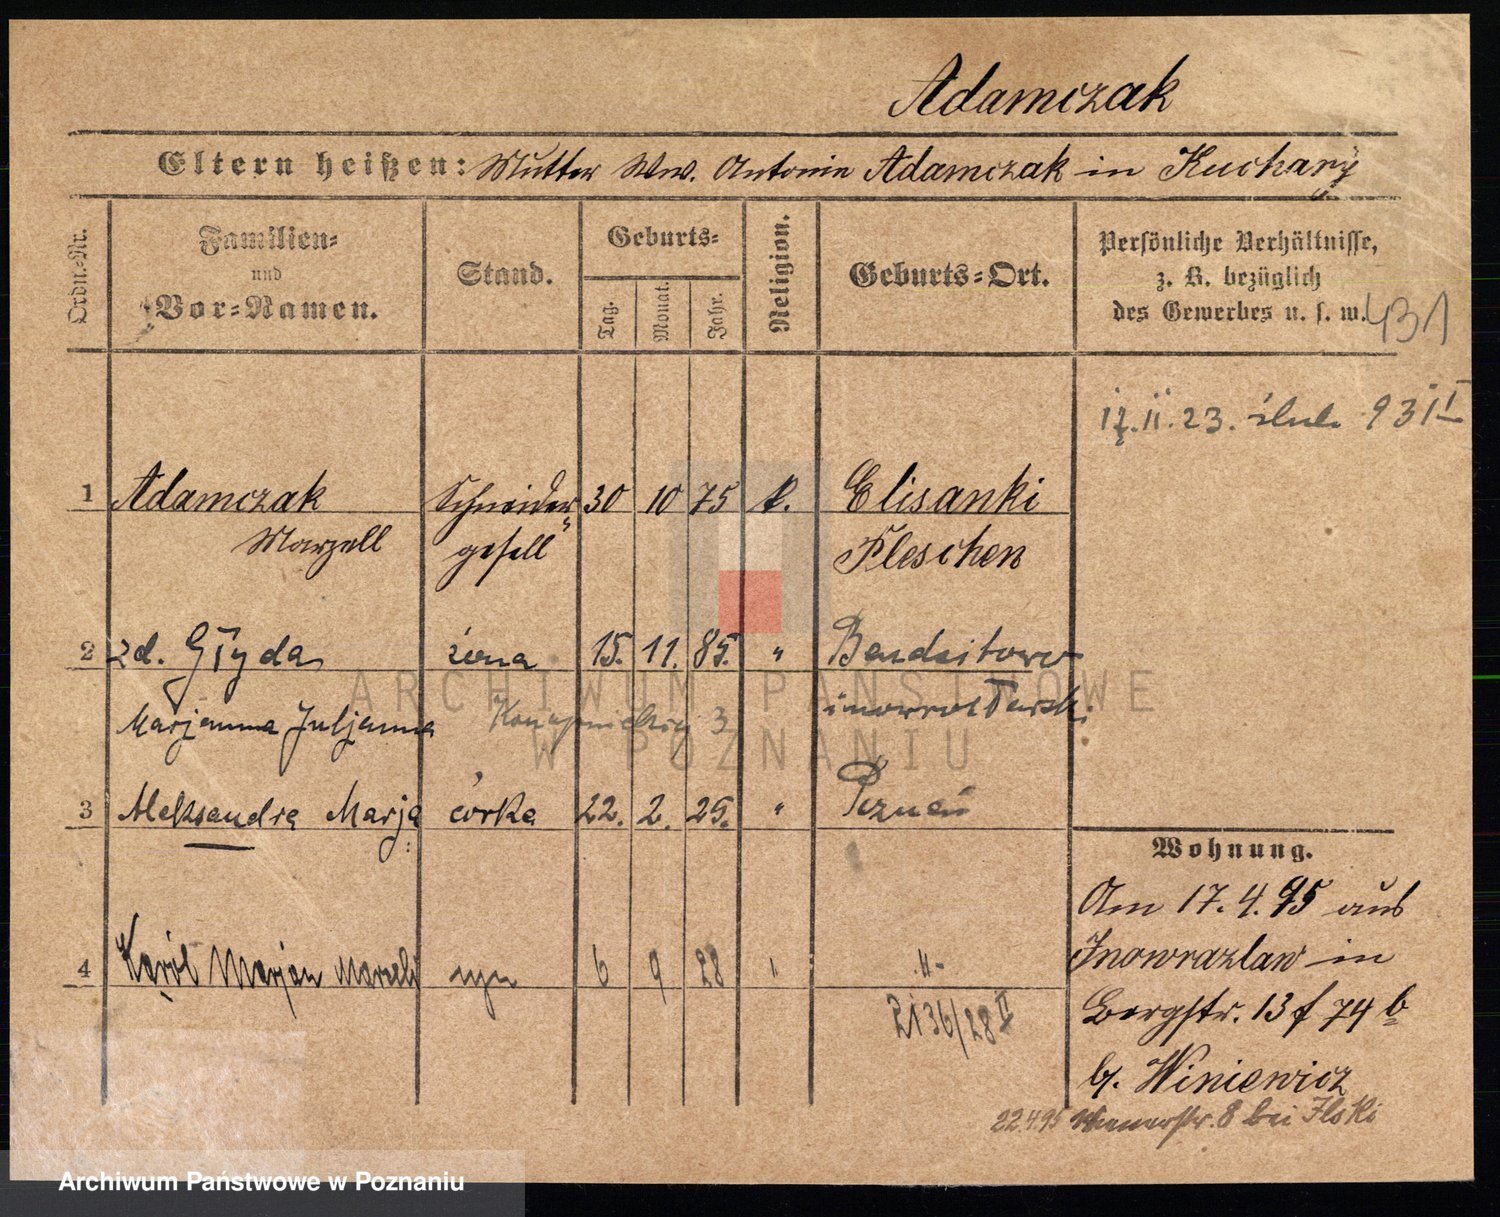 Adamczak
Eltern heißen: Mutter Ww. Antonie Adamczak in Kuchary
Ordn.-Nr.
Familien-
und
Vor-Namen.
Stand.
Geburts-
Tag.
Monat.
Jahr.
Religion.
Geburts-Ort.
Persönliche Verhältnisse,
z. B. bezüglich
des Gewerbes u. s. w.
431
17.II.23. ślub. 93 II
1 Adamczak Schneider 30 10 75 k. Elisanki
Marzell gesell Pleschen
2 zd. Głyda żona 15. 11. 85. "
Marjanna Juljanna 3 inowrocławski
3 Aleksandra Marja córka 22. 2. 25. " Poznań
4 Karól Marjan Marceli syn 6 9 28 " -"-
2136/28 II
Wohnung.
Am 17.4.95 aus
Inowrazlaw in
Bergstr. 13 f 74 b
b. Winiewicz
22.4.95 8 bei
ARCHIWUM PAŃSTWOWE
W POZNANIU
Archiwum Państwowe w Poznaniu